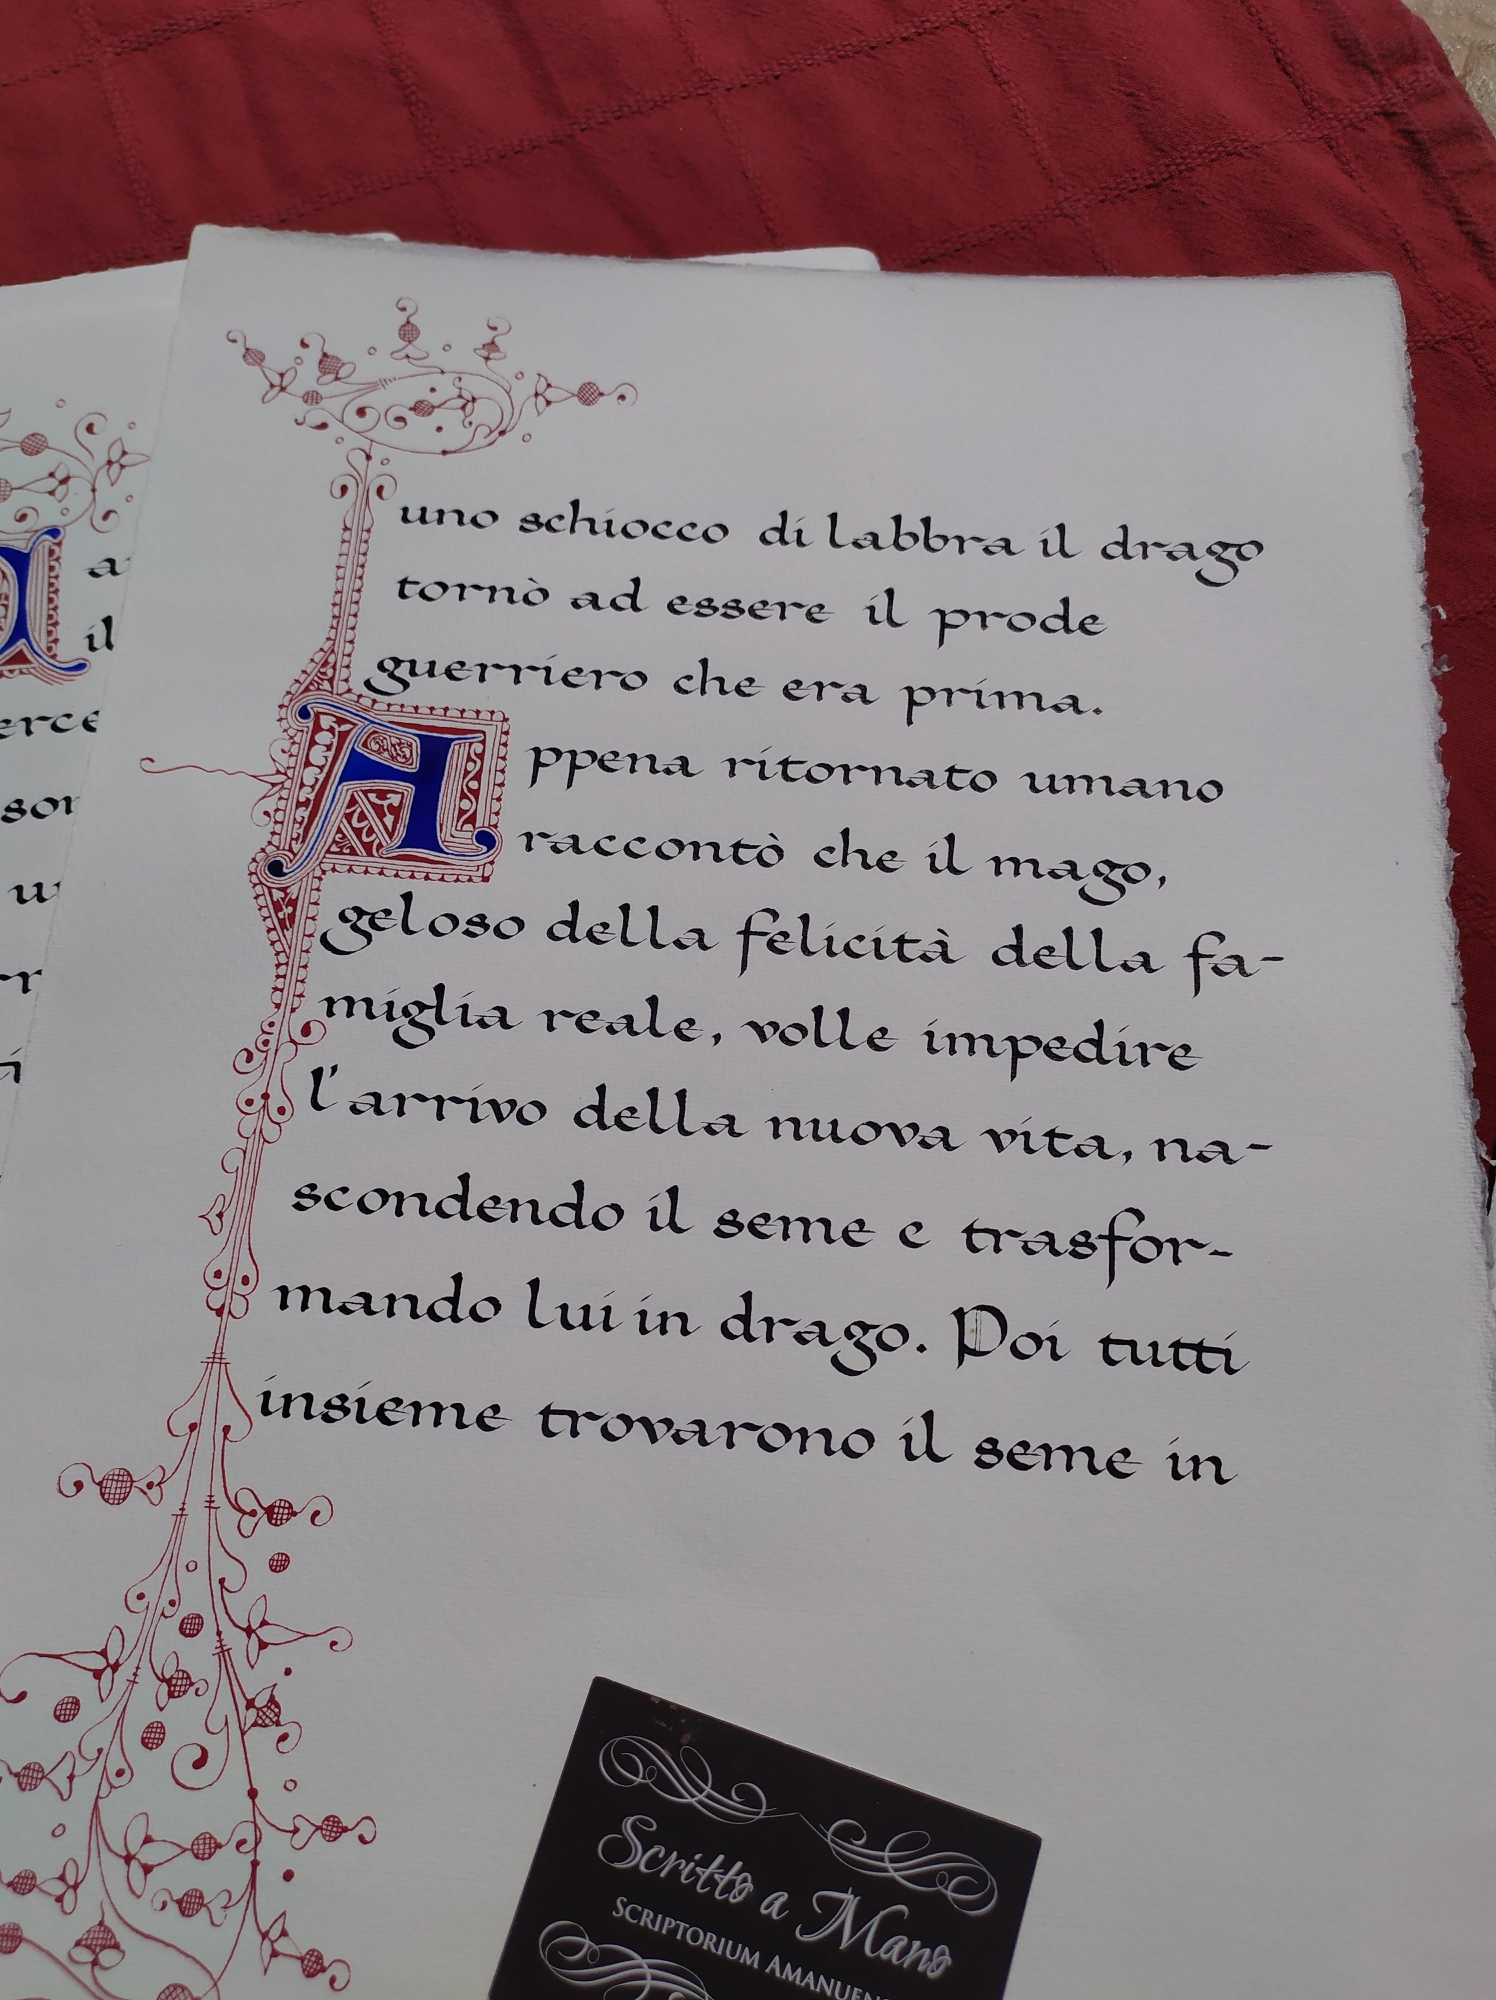 uno schiocco di labbra il drago
tornò ad essere il prode
guerriero che era prima.
Appena ritornato umano
raccontò che il mago,
geloso della felicità della fa-
miglia reale, volle impedire
l'arrivo della nuova vita, na-
scondendo il seme e trasfor-
mando lui in drago. Poi tutti
insieme trovarono il seme in
il
Scritto a Mano
SCRIPTORIUM